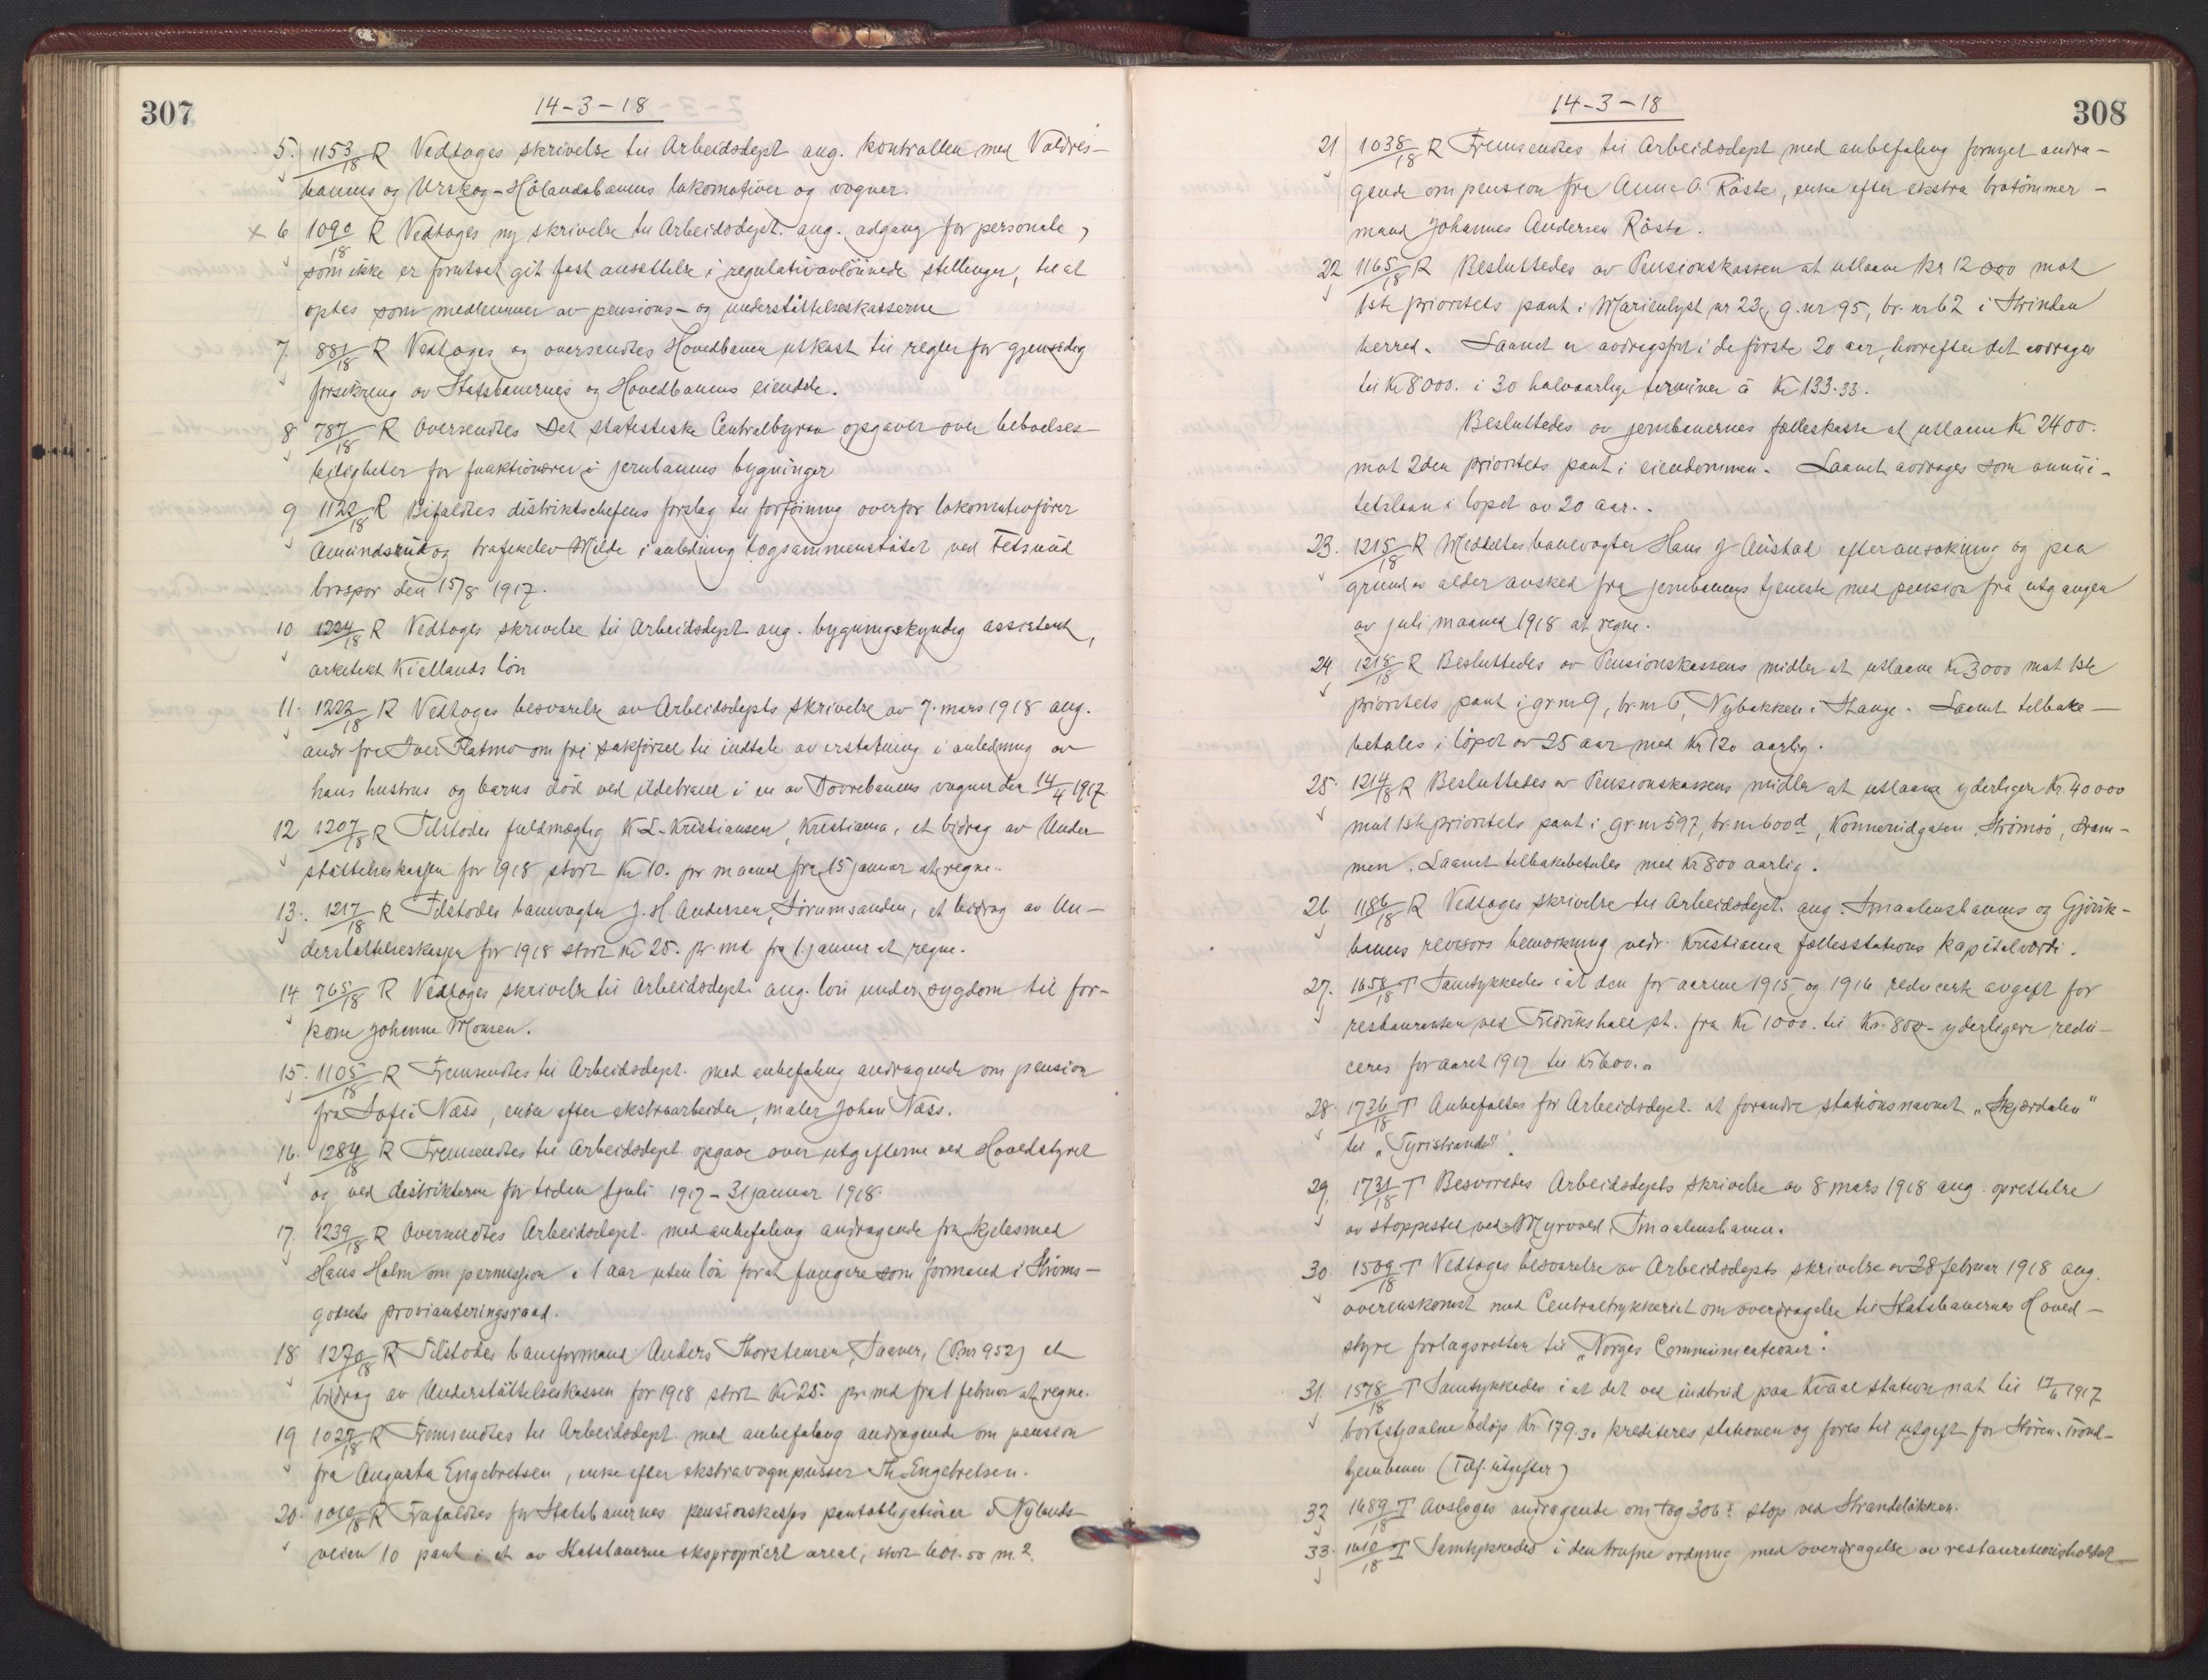 307
14-3-18
5. 1153/18 R Vedtoges skrivelse til Arbeidsdept ang. kontrollen med Valdres-
banens og Urskog-Hölandsbanens lokomotiver og vogner.
x 6 1090/18 R Vedtoges ny skrivelse til Arbeidsdept. ang. adgang for personale,
som ikke er forutsat git fast ansettelse i regulativavlönnede stillinger, til at
optas som medlemmer av pensions- og understöttelseskasserne
7. 881/18 R Vedtoges og oversendtes Hovedbanen utkast til regler for gjensidig
forsikring av Statsbanernes og Hovedbanens eiendele.
8 787/18 R Oversendtes Det statistiske Centralbyraa opgaver over beboelses-
leiligheter for funktionærer i jernbanens bygninger
9 1122/18 R Bifaldtes distriktschefens forslag til forföining overfor lokomotivförer
Amundsrud og trafikelev Milde i anledning togsammenstötet ved Fetsund
brospor den 15/8 1917.
10 1224/18 R Vedtoges skrivelse til Arbeidsdept. ang. bygningskyndig assistent,
arkitekt Kiellands lön
11. 1222/18 R Vedtoges besvarelse av Arbeidsdepts skrivelse av 7. mars 1918 ang.
andr fra Iver Flatmo om fri sakförsel til indtale av erstatning i anledning av
hans hustrus og barns död ved ildebrand i en av Dovrebanens vogner den 14/4 1917.
12 1207/18 R Tilstodes fuldmægtig K L. Kristiansen, Kristiania, et bidrag av Under-
stöttelseskassen for 1918 stort Kr 10. pr maaned fra 15 januar at regne.
13. 1217/18 R Tilstodes banevogter J. H. Andersen, Sörumsanden, et bidrag av Un-
derstöttelseskassen for 1918 stort Kr 25. pr. md fra 1. januar at regne.
14 765/18 R Vedtoges skrivelse til Arbeidsdept. ang. lön under sygdom til for-
kone Johanne Monsen.
15. 1105/18 R Fremsendtes til Arbeidsdept. med anbefaling andragende om pension
fra Sofie Næss, enke efter ekstraarbeider, maler Johan Næss.
16. 1284/18 R Fremsendtes til Arbeidsdept opgave over utgifterne ved Hovedstyret
og ved distrikterne for tiden 1 juli 1917 - 31 januar 1918.
17. 1239/18 R Oversendtes Arbeidsdept. med anbefaling andragende fra kjelesmed
Hans Holm om permission i 1 aar uten lön for at fungere som formand i Ströms-
godsets provianteringsraad.
18 1270/18 R Tilstodes baneformand Anders Thorstensen, Saaner, (P.nr 952) et
bidrag av Understöttelseskassen for 1918 stort Kr 25. pr. md fra 1 februar at regne.
19 1027/18 R Fremsendtes til Arbeidsdept. med anbefaling andragende om pension
fra Augusta Engebretsen, enke efter ekstravognpusser Th. Engebretsen.
20. 1010/18 R Frafaldtes for Statsbanernes pensionskasses pantobligationer i Nylands-
veien 10 pant i et av Statsbanerne ekspropriert areal, stort 601.50 m.2.
308
14-3-18
21 1038/18 R Fremsendtes til Arbeidsdept med anbefaling fornyet andra-
gende om pension fra Anne O. Röste, enke efter ekstra brotömmer-
mand Johannes Andersen Röste.
22 1165/18 R Besluttedes av Pensionskassen at utlaane kr 12 000 mot
1ste prioritets pant i Marienlyst nr 23, g.nr 95, br. nr 62 i Strinden
herred. Laanet er avdragsfrit i de förste 20 aar, hvorefter det avdrages
til Kr 8000. i 30 halvaarlige terminer á Kr 133.33.
Besluttedes av jernbanernes fælleskasse at utlaane Kr 2400.
mot 2den prioritets pant i eiendommen. Laanet avdrages som annui-
tetslaan i löpet av 20 aar.
23. 1215/18 R Meddeltes banevogter Hans J Austad efter ansökning og paa
grund av alder avsked fra jernbanens tjeneste med pension fra utgangen
av juli maaned 1918 at regne.
24. 1218/18 R Besluttedes av Pensionskassens midler at utlaane Kr 3000 mot 1ste
prioritets pant i gr nr 9, br. nr 6, Nybakken i Stange. Laanet tilbake-
betales i löpet av 25 aar med Kr 120 aarlig.
25. 1214/18 R Besluttedes av Pensionskassens midler at utlaane yderligere Kr. 40 000
mot 1ste prioritets pant i gr nr 597, br. nr 600d, Konnerudgaten, Strömsö, Dram-
men. Laanet tilbakebetales med Kr 800 aarlig.
26. 1186/18 R Vedtoges skrivelse til Arbeidsdept. ang. Smaalensbanens og Gjövik-
banens revisors bemerkning vedr. Kristiania fællesstations kapitalværdi.
27. 1658/18 T Samtykkedes i at den for aarene 1915 og 1916 reducerte avgift for
restauranten ved Fredrikshald st. fra Kr 1000. til Kr. 800- yderligere redu-
ceres for aaret 1917 til Kr 600..
28. 1736/18 T Anbefaltes for Arbeidsdept. at forandre stationsnavnet „Skjærdalen"
til „Tyristrand".
29. 1731/18 T Besvartes Arbeidsdepts skrivelse av 8 mars 1918 ang. oprettelse
av stoppested ved Myrvold i Smaalensbanen.
30. 1509/18 T Vedtoges besvarelse av Arbeidsdepts skrivelse av 28 februar 1918 ang.
overenskomst med Centraltrykkeriet om overdragelse til Statsbanernes Hoved-
styre forlagsretten til „Norges Communicationer".
31. 1578/18 T Samtykkedes i at det ved indbrud paa Kvaal station nat til 17/6 1917
bortstjaalne belöp Kr. 179.30 krediteres stationen og föres til utgift for Stören-Trond-
hjembanen (Tilf. utgifter)
32 1689/18 T Avsloges andragende om tog 306s stop ved Strandelökken.
33. 1610/18 T Samtykkedes i den trufne ordning med overdragelse av restaurationsholdet